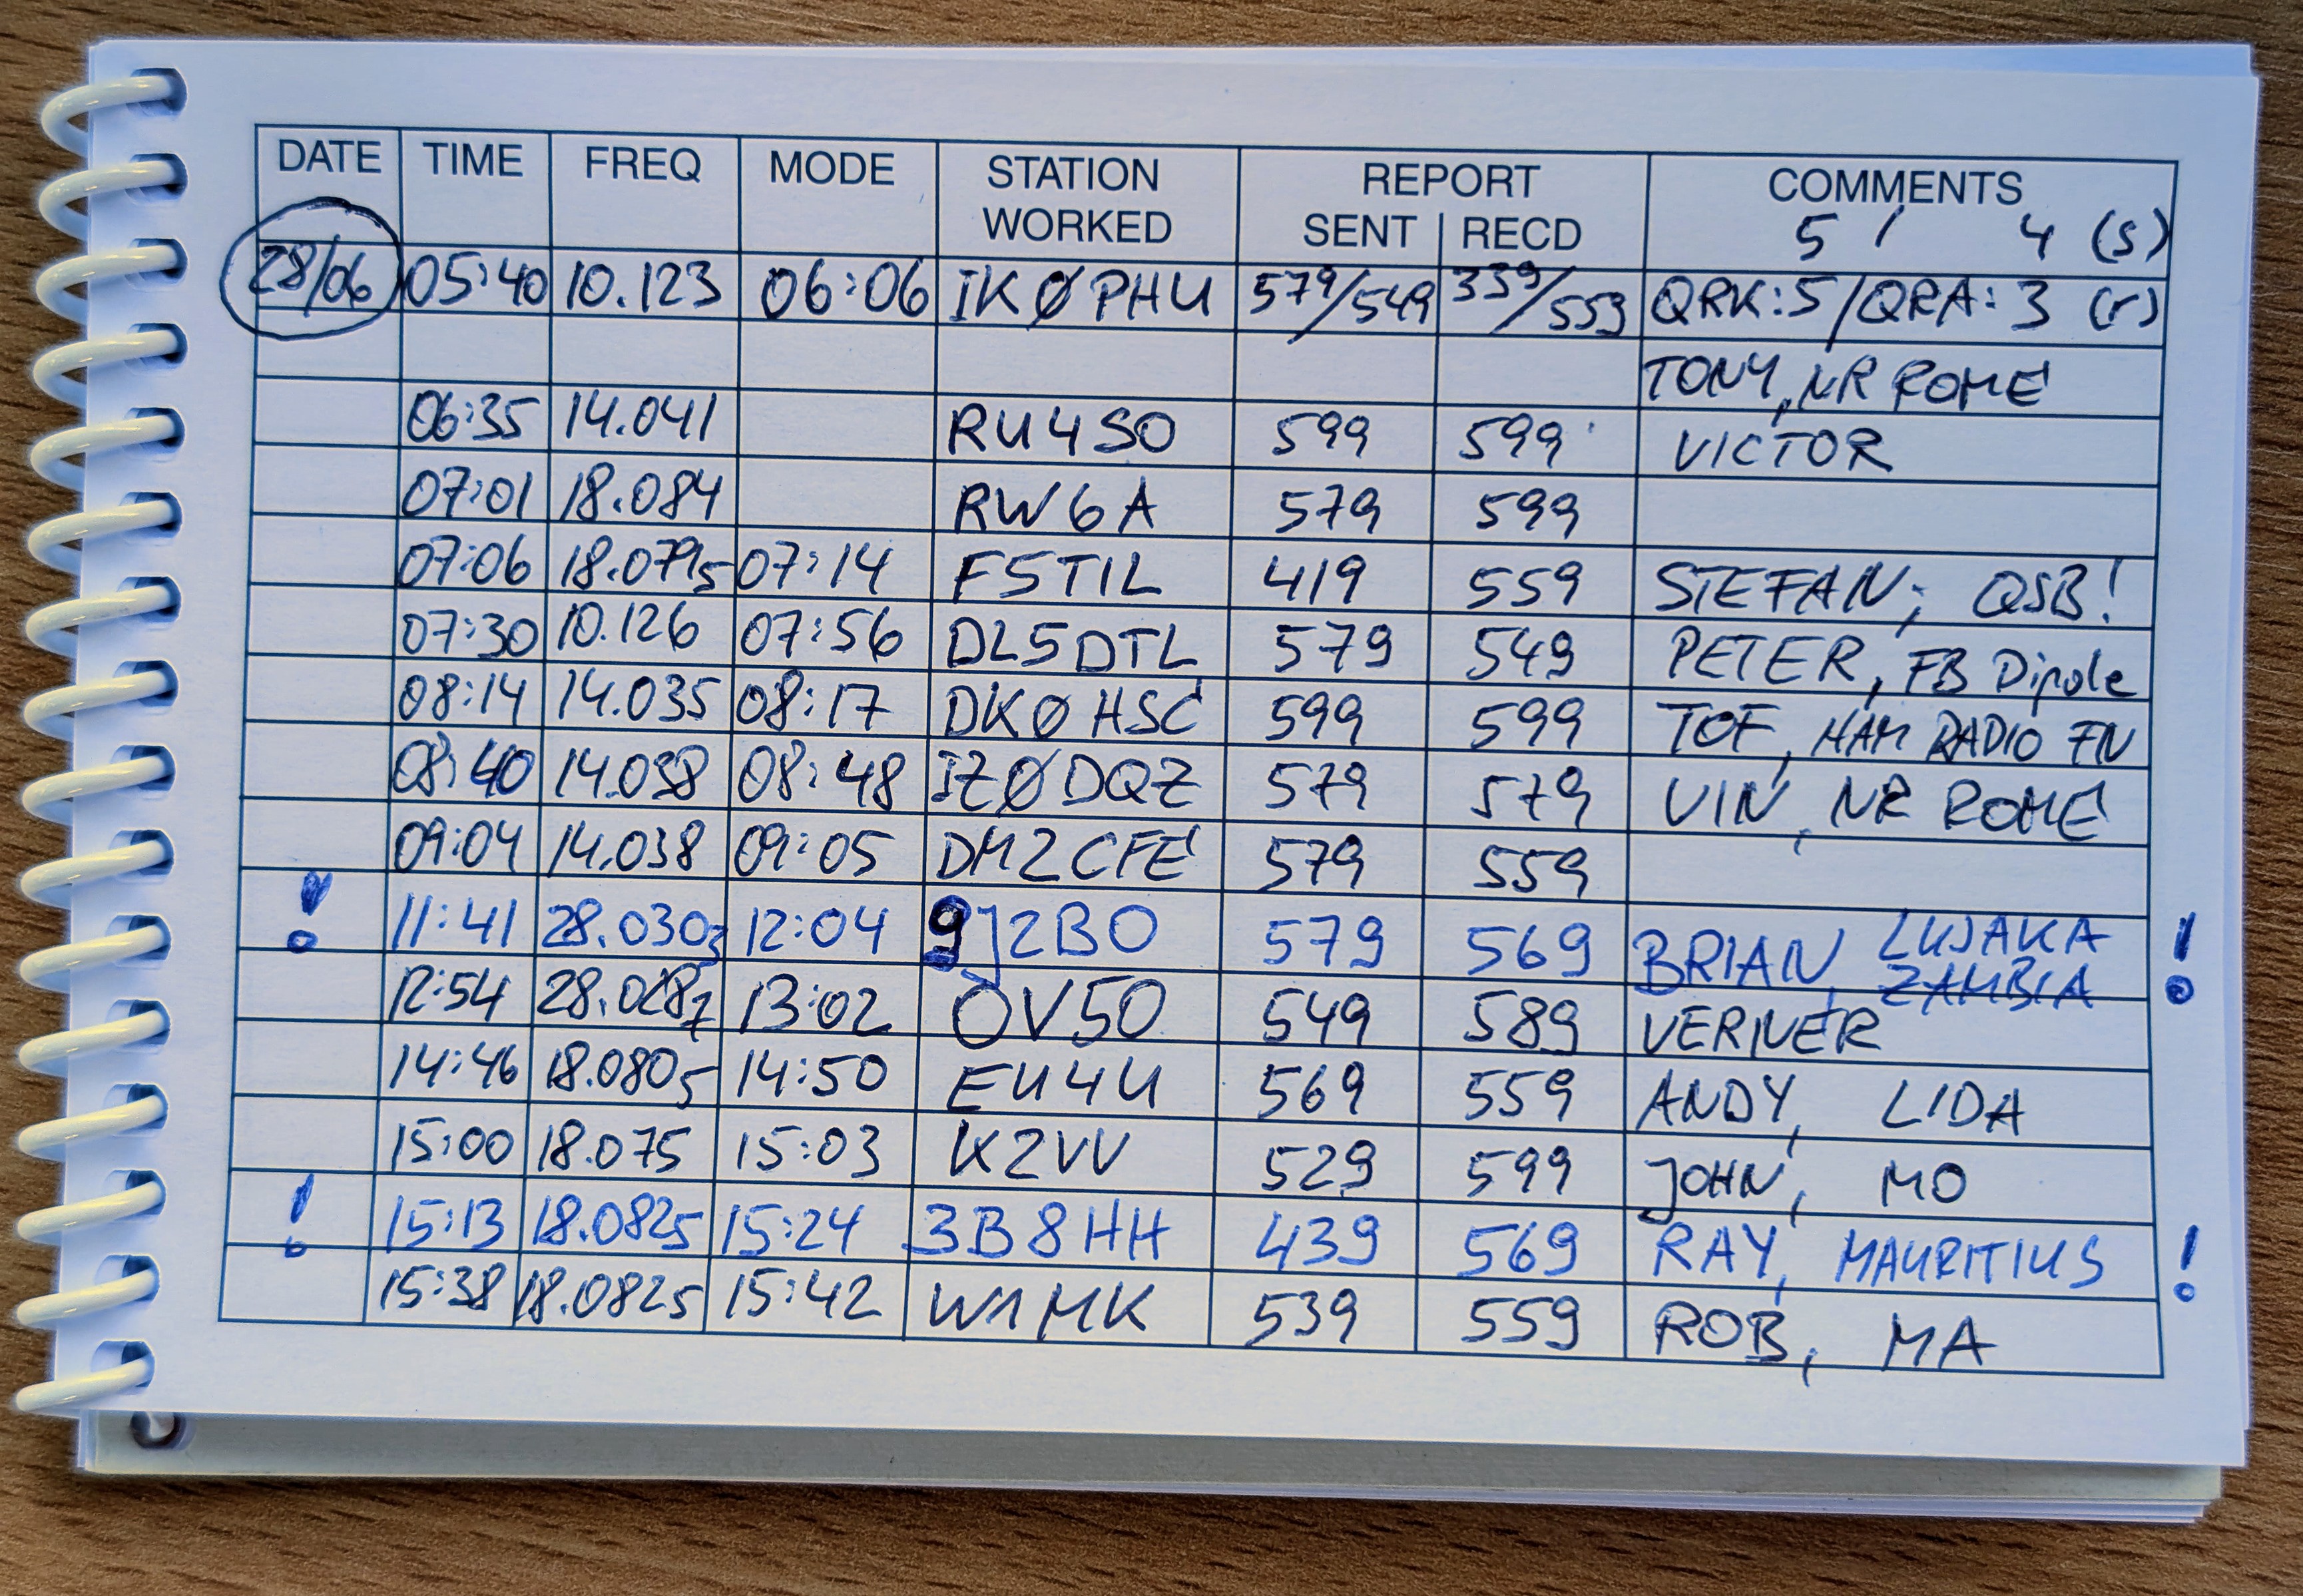 DATE TIME FREQ MODE STATION WORKED REPORT SENT | RECD COMMENTS
5 / 4 (s)
28/06 05:40 10.123 06:06 IKØPHU 579/549 339/559 QRK:5/QRA:3 (r)
TONY, NR ROME
06:35 14.041 RU4SO 599 599 VICTOR
07:01 18.084 RW6A 579 599
07:06 18.0795 07:14 F5TIL 419 559 STEFAN; QSB!
07:30 10.126 07:56 DL5DTL 579 549 PETER, FB Dipole
08:14 14.035 08:17 DKØHSC 599 599 TOF, HAM RADIO FN
08:40 14.038 08:48 IZØDQZ 579 579 VIN, NR ROME
09:04 14.038 09:05 DM2CFE 579 559
! 11:41 28.0303 12:04 9J2BO 579 569 BRIAN, LUSAKA ZAMBIA !
12:54 28.0287 13:02 OV5O 549 589 VERNER
14:46 18.0805 14:50 EU4U 569 559 ANDY, LIDA
15:00 18.075 15:03 K2VV 529 599 JOHN, MO
! 15:13 18.0825 15:24 3B8HH 439 569 RAY, MAURITIUS !
15:38 18.0825 15:42 W1MK 539 559 ROB, MA